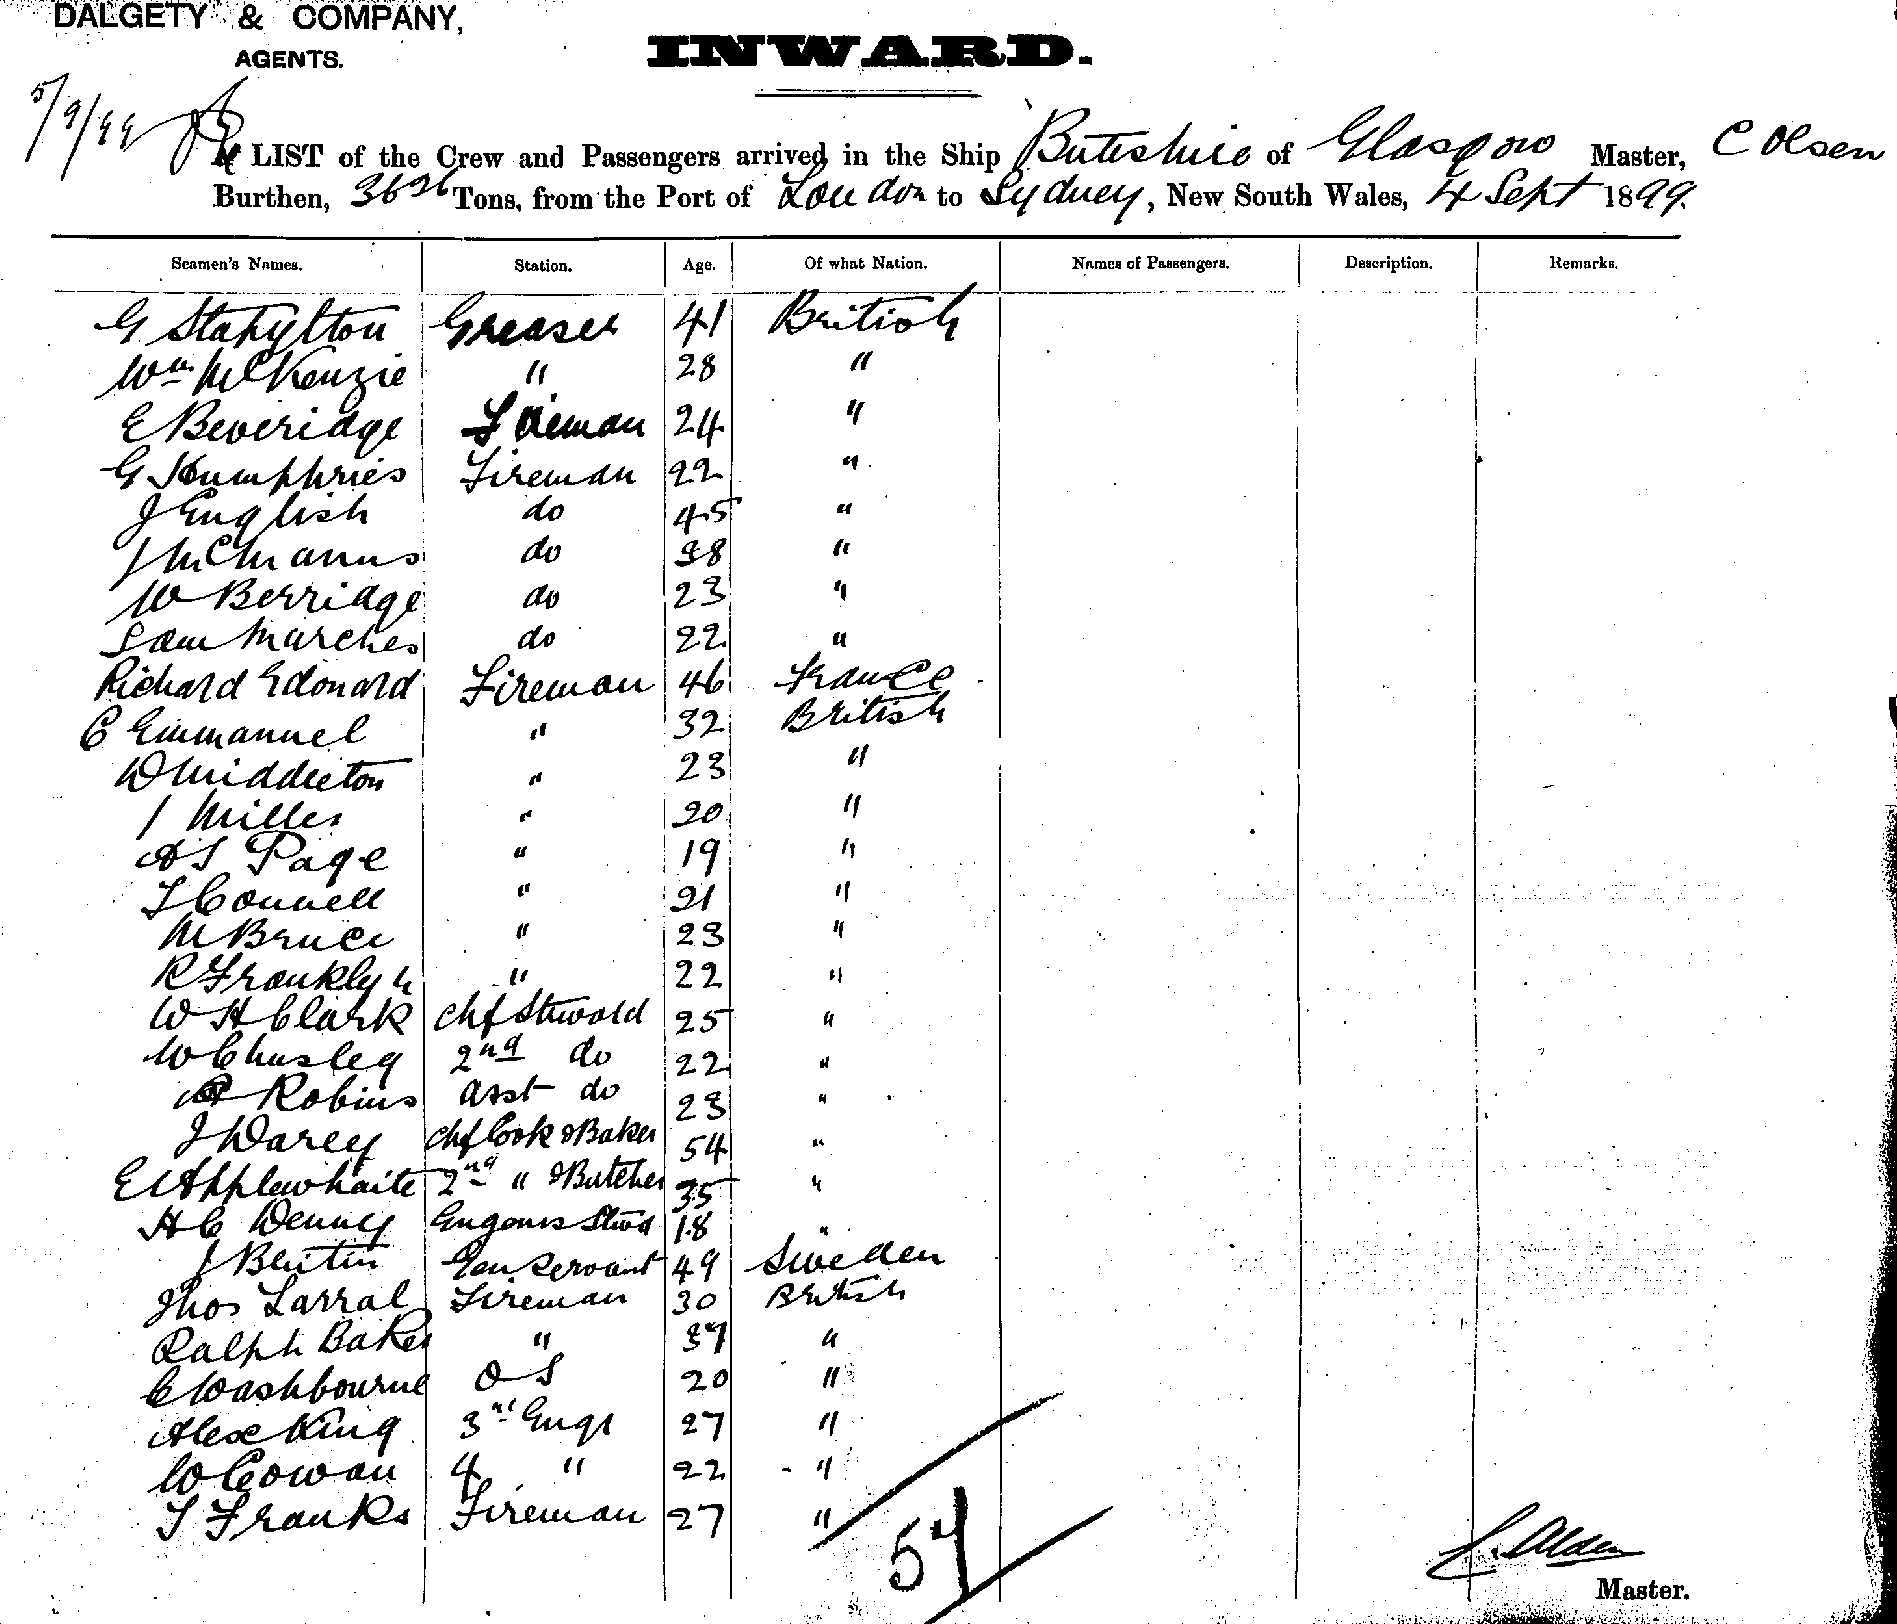 DALGETY & COMPANY,
AGENTS.
INWARD.
5/9/99
LIST of the Crew and Passengers arrived in the Ship Buteshire of Glasgow Master, C Olsen
Burthen, 3626 Tons, from the Port of London to Sydney, New South Wales, 4 Sept 1899.
Seamen's Names. Station. Age. Of what Nation. Names of Passengers. Description. Remarks.
G Stapylton Greaser 41 British
Wm McKenzie " 28 "
E Beveridge Fireman 24 "
G Humphries Fireman 22 "
J English do 45 "
J McManus do 38 "
W Berridge do 23 "
Sam Marches do 22 "
Richard Edouard Fireman 46 France
C Emmanuel " 32 British
D Middleton " 23 "
J Miller " 20 "
A S Page " 19 "
T Connell " 21 "
M Bruce " 23 "
R Franklyn " 22 "
W H Clark Chf Steward 25 "
W Chusley 2nd do 22 "
Robins Asst do 23 "
J Darey Chf Cook & Baker 54 "
E Applewhaite 2nd " & Butcher 35 "
H C Denney Engeners Stwd 18 "
J Bentin Gen Servant 49 Sweden
Thos Larral Fireman 30 British
Ralph Baker " 37 "
C Washbourne O S 20 "
Alex King 3rd Engr 27 "
W Cowan 4 " 22 "
T Franks Fireman 27 "
57
C. Olsen
Master.